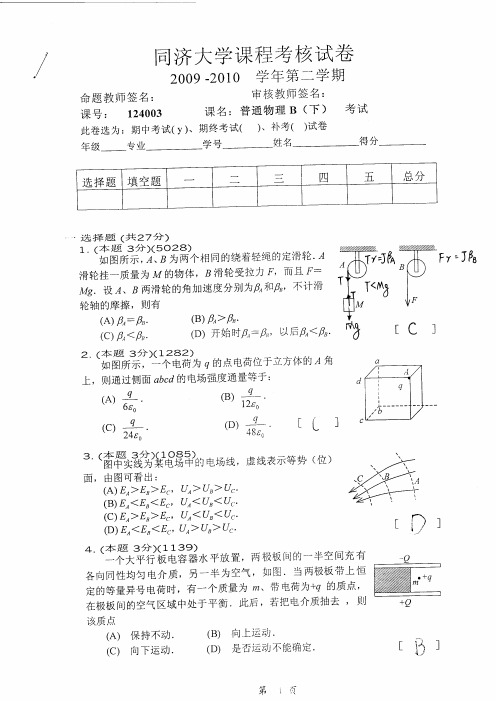 同济大学课程考核试卷
2009 -2010 学年第二学期
命题教师签名： 审核教师签名：
课号： 124003 课名：普通物理 B（下） 考试
此卷选为：期中考试( y )、期终考试( )、补考( )试卷
年级 专业 学号 姓名 得分
选择题 填空题 一 二 三 四 五 总分
选择题 (共27分)
1. (本题 3分)(5028)
如图所示，A、B 为两个相同的绕着轻绳的定滑轮．A
滑轮挂一质量为 M 的物体，B 滑轮受拉力 F，而且 F＝
Mg．设 A、B 两滑轮的角加速度分别为βA和βB，不计滑
轮轴的摩擦，则有
(A) βA＝βB． (B) βA＞βB．
(C) βA＜βB． (D) 开始时βA＝βB，以后βA＜βB．
[ C ]
A Tγ=JβA B Fγ=JβB
T
T T<Mg
M F
mg
2. (本题 3分)(1282)
如图所示，一个电荷为 q 的点电荷位于立方体的 A 角
上，则通过侧面 abcd 的电场强度通量等于：
(A) q/6ε0． (B) q/12ε0．
(C) q/24ε0． (D) q/48ε0． [ C ]
a
A
d
q
b
c
3. (本题 3分)(1085)
图中实线为某电场中的电场线，虚线表示等势（位）
面，由图可看出：
(A) EA＞EB＞EC，UA＞UB＞UC．
(B) EA＜EB＜EC，UA＜UB＜UC．
(C) EA＞EB＞EC，UA＜UB＜UC．
(D) EA＜EB＜EC，UA＞UB＞UC．
[ D ]
C B A
4. (本题 3分)(1139)
一个大平行板电容器水平放置，两极板间的一半空间充有
各向同性均匀电介质，另一半为空气，如图．当两极板带上恒
定的等量异号电荷时，有一个质量为 m、带电荷为+q 的质点，
在极板间的空气区域中处于平衡．此后，若把电介质抽去 ，则
该质点
(A) 保持不动． (B) 向上运动．
(C) 向下运动． (D) 是否运动不能确定．
[ B ]
-Q
m +q
+Q
第 1 页